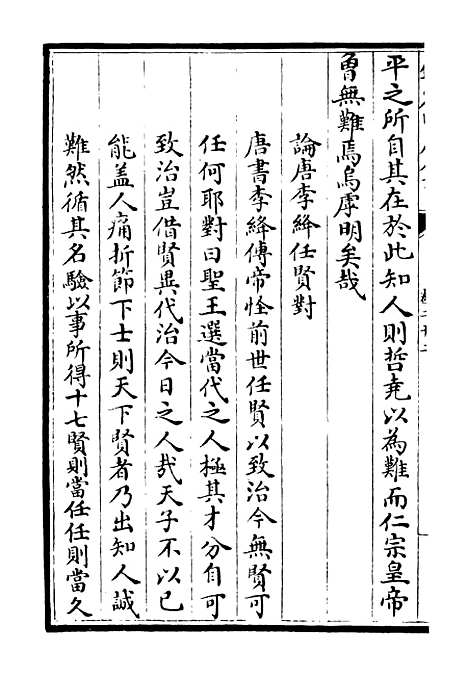 平之所自其在於此知人則哲堯以為難而仁宗皇帝
曾無難焉烏虖明矣哉
論唐李絳任賢對
唐書李絳傳帝怪前世任賢以致治今無賢可
任何耶對曰聖王選當代之人極其才分自可
致治豈借賢異代治今日之人㢤天子不以已
能盖人痛折節下士則天下賢者乃出知人誠
難然循其名驗以事所得十七賢則當任任則當久